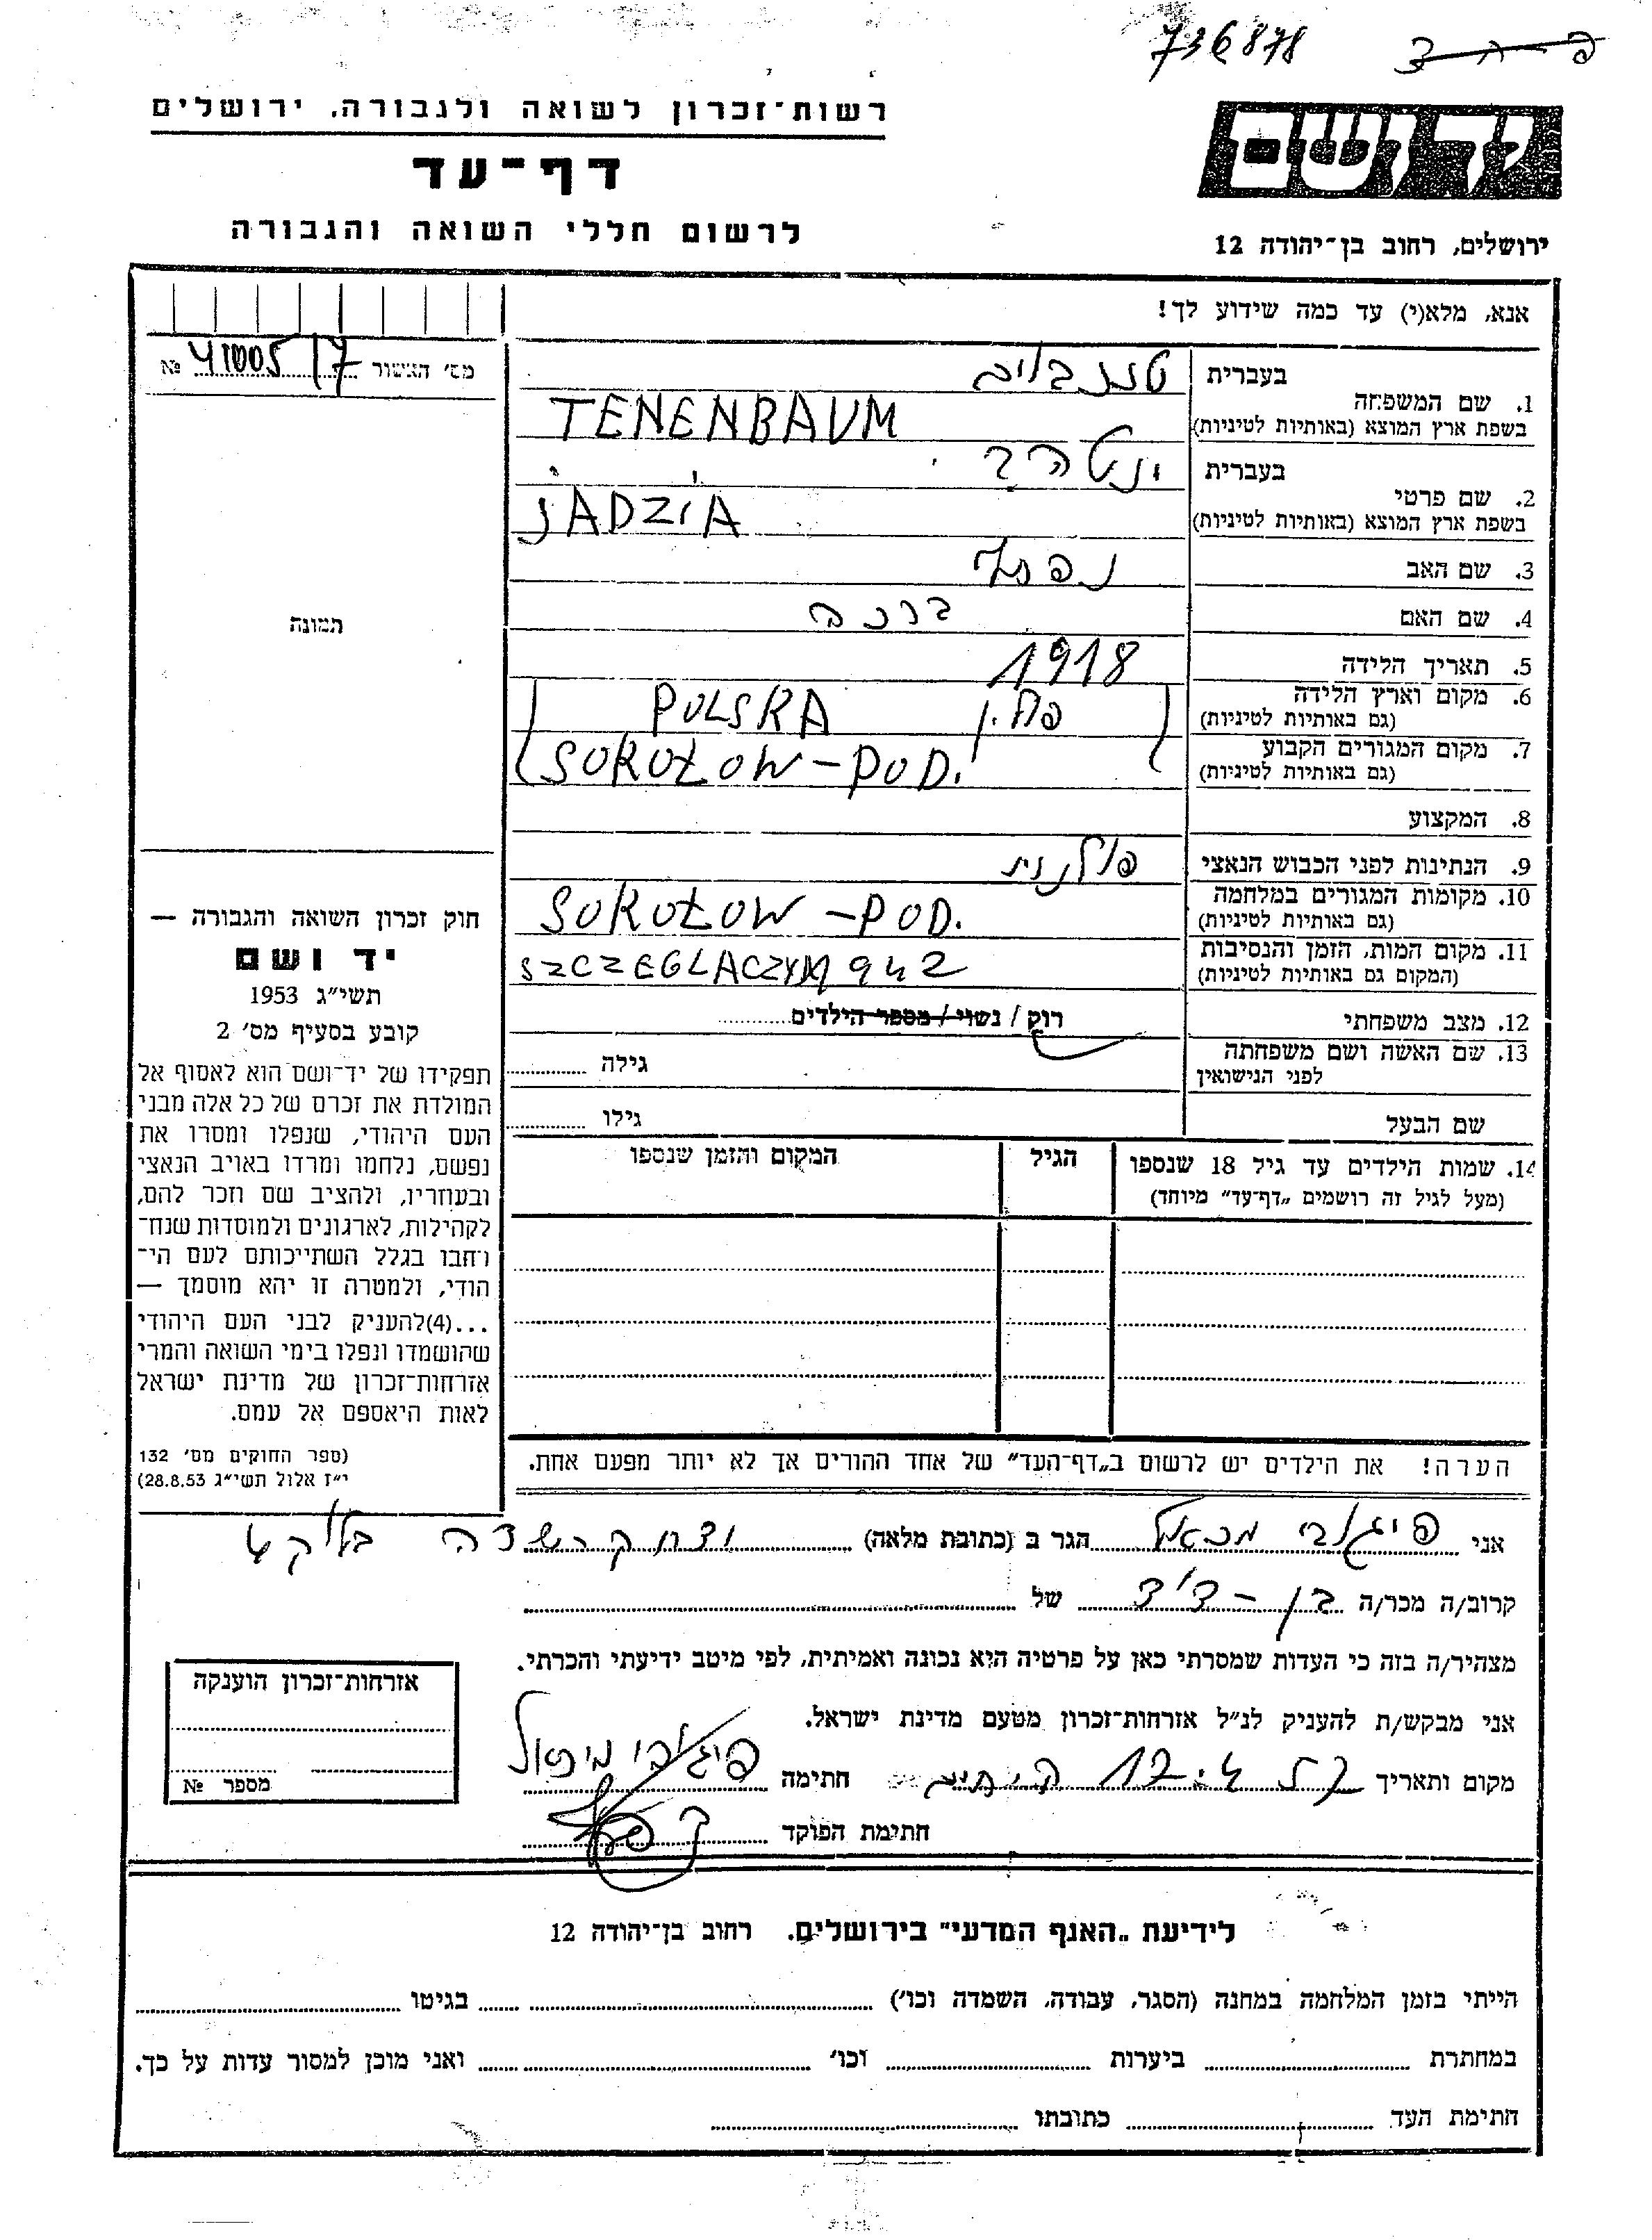 736878
רשות־זכרון לשואה ולגבורה, ירושלים
דף־עד
לרשום חללי השואה והגבורה
יד ושם
ירושלים, רחוב בן־יהודה 12
אנא, מלא(י) עד כמה שידוע לך!
מס׳ האשור №
בעברית
1. שם המשפחה
בשפת ארץ המוצא (באותיות לטיניות) TENENBAUM
בעברית
2. שם פרטי
בשפת ארץ המוצא (באותיות לטיניות) JADZIA
3. שם האב
4. שם האם ברכה
5. תאריך הלידה 1918
6. מקום וארץ הלידה
(גם באותיות לטיניות) פולין POLSKA
7. מקום המגורים הקבוע
(גם באותיות לטיניות) SOKOŁOW-POD.
8. המקצוע
9. הנתינות לפני הכבוש הנאצי פולנית
10. מקומות המגורים במלחמה
(גם באותיות לטיניות) SOKOŁOW-POD.
11. מקום המות, הזמן והנסיבות
(המקום גם באותיות לטיניות) 942
12. מצב משפחתי רוק / נשוי / מספר הילדים
13. שם האשה ושם משפחתה
לפני הנישואין גילה
שם הבעל גילו
14. שמות הילדים עד גיל 18 שנספו הגיל המקום והזמן שנספו
(מעל לגיל זה רושמים „דף־עד” מיוחד)
הערה! את הילדים יש לרשום ב„דף־העד” של אחד ההורים אך לא יותר מפעם אחת.
תמונה
חוק זכרון השואה והגבורה —
יד ושם
תשי״ג 1953
קובע בסעיף מס׳ 2
תפקידו של יד־ושם הוא לאסוף אל
המולדת את זכרם של כל אלה מבני
העם היהודי, שנפלו ומסרו את
נפשם, נלחמו ומרדו באויב הנאצי
ובעוזריו, ולהציב שם וזכר להם,
לקהילות, לארגונים ולמוסדות שנח־
רחבו בגלל השתייכותם לעם הי־
הודי, ולמטרה זו יהא מוסמך —
...(4)להעניק לבני העם היהודי
שהושמדו ונפלו בימי השואה והמרי
אזרחות־זכרון של מדינת ישראל
לאות היאספם אל עמם.
(ספר החוקים מס׳ 132
י״ז אלול תשי״ג 28.8.53)
אני הגר ב (כתובת מלאה)
קרוב/ה מכר/ה בן-דוד של
מצהיר/ה בזה כי העדות שמסרתי כאן על פרטיה היא נכונה ואמיתית, לפי מיטב ידיעתי והכרתי.
אני מבקש/ת להעניק לנ״ל אזרחות־זכרון מטעם מדינת ישראל.
מקום ותאריך חתימה
חתימת הפוקד
אזרחות־זכרון הוענקה
מספר №
לידיעת „האנף המדעי” בירושלים. רחוב בן־יהודה 12
הייתי בזמן המלחמה במחנה (הסגר, עבודה, השמדה וכו׳) בגיטו
במחתרת ביערות וכו׳ ואני מוכן למסור עדות על כך.
חתימת העד כתובתו